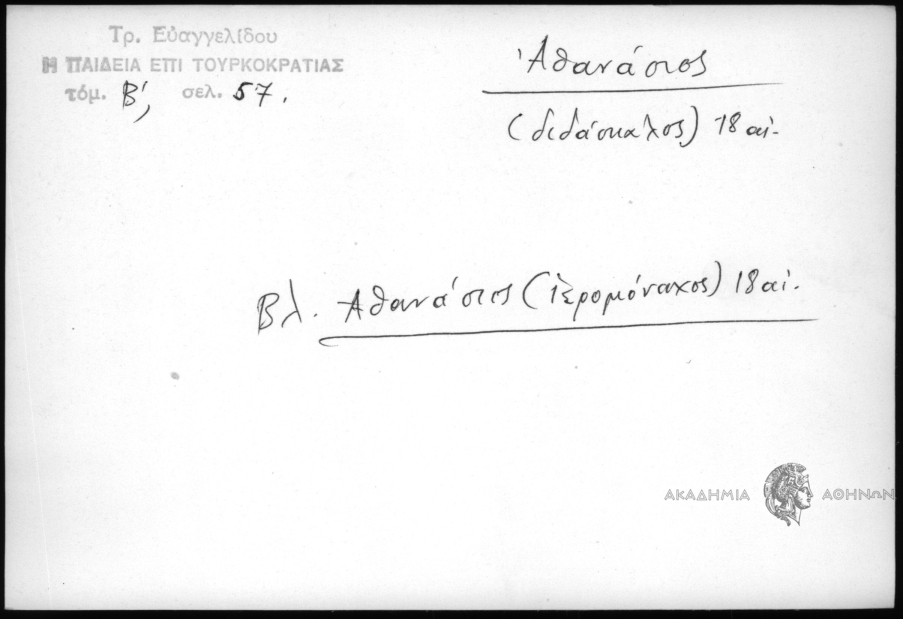 Τρ. Εὐαγγελίδου
Η ΠΑΙΔΕΙΑ ΕΠΙ ΤΟΥΡΚΟΚΡΑΤΙΑΣ
τόμ. Β', σελ. 57.
Ἀθανάσιος
(διδάσκαλος) 18 αἰ.
Βλ. Ἀθανάσιος (ἱερομόναχος) 18 αἰ.
ΑΚΑΔΗΜΙΑ ΑΘΗΝΩΝ